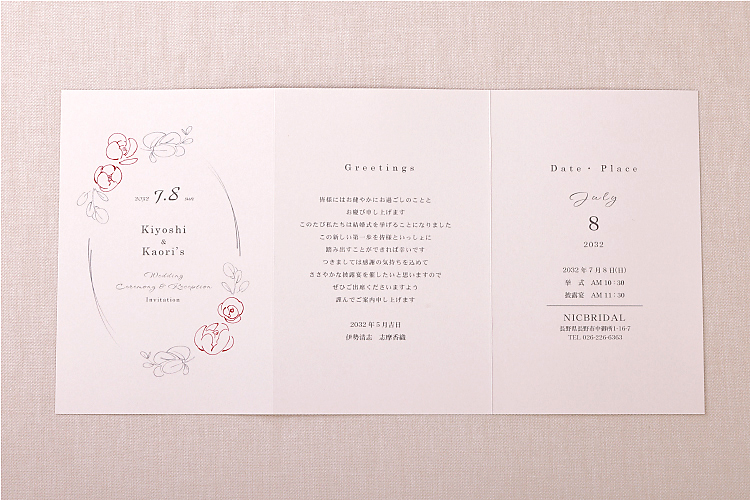 2032 7.8 sun
Kiyoshi
&
Kaori's
Wedding
Ceremony & Reception
Invitation
Greetings
皆様にはお健やかにお過ごしのことと
お慶び申し上げます
このたび私たちは結婚式を挙げることになりました
この新しい第一歩を皆様といっしょに
踏み出すことができれば幸いです
つきましては感謝の気持ちを込めて
ささやかな披露宴を催したいと思いますので
ぜひご出席くださいますよう
謹んでご案内申し上げます
2032年5月吉日
伊勢清志 志摩香織
Date・Place
July
8
2032
2032年7月8日(日)
挙 式 AM 10:30
披露宴 AM 11:30
NICBRIDAL
長野県長野市中御所1-16-7
TEL 026-226-6363